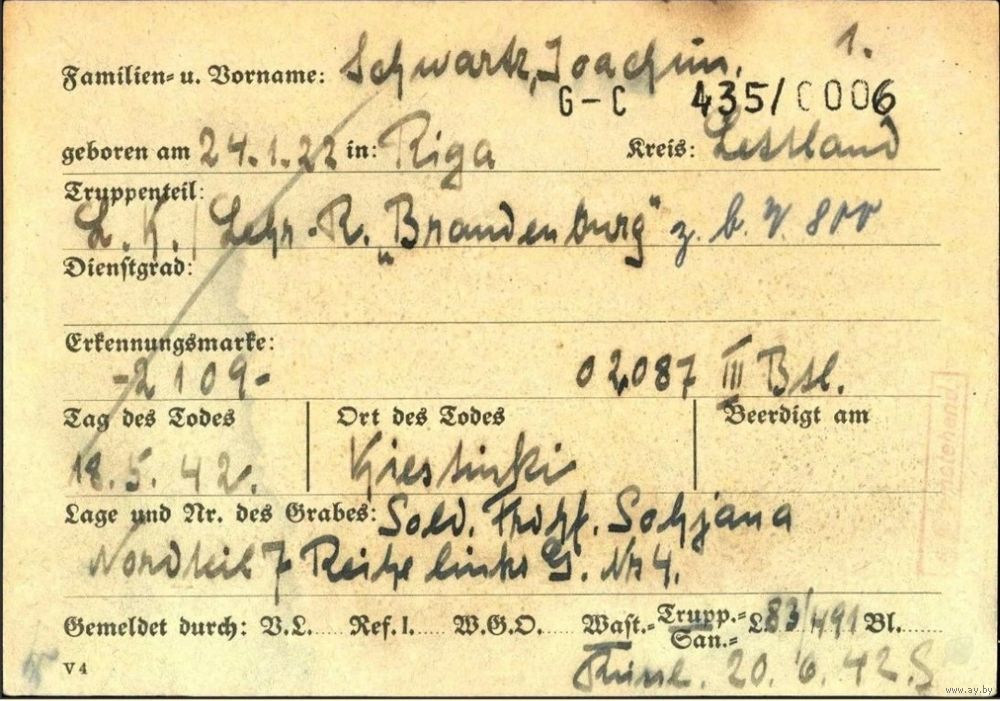 1.
Familien- u. Vorname: Schwartz, Joachim.
G-C 435/C006
geboren am 24.1.22 in: Riga Kreis: Lettland
Truppenteil:
L.K./Lehr-R. „Brandenburg" z. b. V. 800
Dienstgrad:
Erkennungsmarke:
-2109- 02087 III Btl.
Tag des Todes Ort des Todes Beerdigt am
18.5.42. Kiestinki
Lage und Nr. des Grabes: Sold. Frdhf. Sohjana
Nordteil 7 Reihe links G. Nr 4.
Gemeldet durch: V.L..... Ref. I..... W.G.O..... Wast.- Trupp.- San.- L 83/491 Bl.......
20.6.42.
V 4
www.ay.by